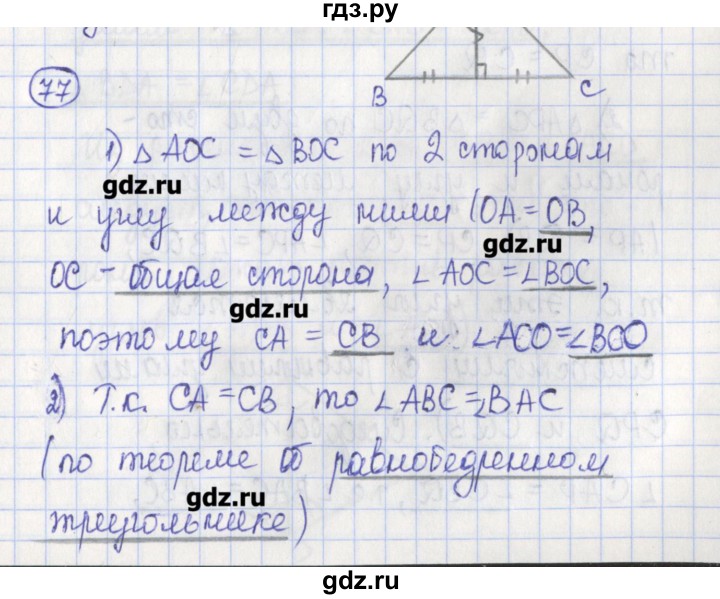 гдз.ру
В С
77
1) △ AOC = △ BOC по 2 сторонам
gdz.ru
и углу между ними (OA = OB,
gdz.ru
OC - общая сторона, ∠ AOC = ∠ BOC,
gdz.ru
поэтому CA = CB и ∠ACO = ∠BCO
2) Т.к. CA = CB, то ∠ ABC = ∠ BAC
(по теореме об равнобедренном
gdz.ru
треугольнике)
gdz.ru